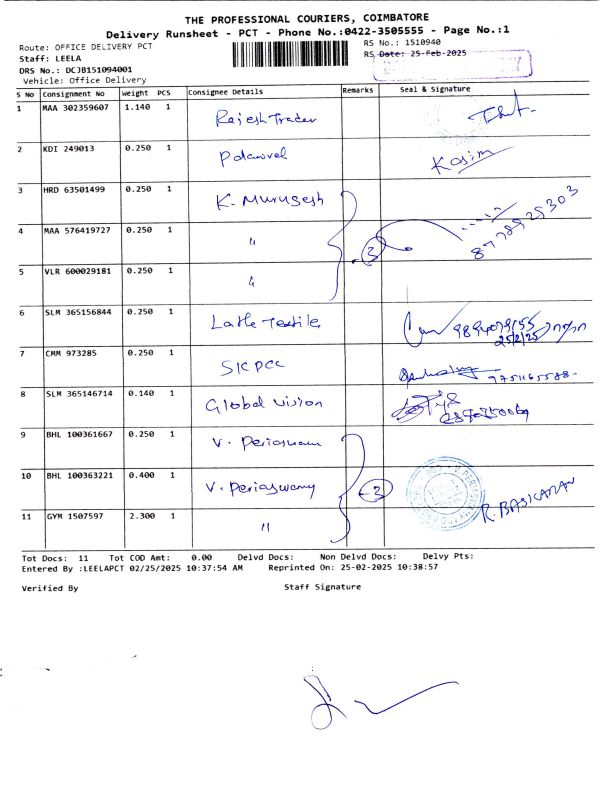 THE PROFESSIONAL COURIERS, COIMBATORE
Delivery Runsheet - PCT - Phone No.:0422-3505555 - Page No.:1
Route: OFFICE DELIVERY PCT RS No.: 1510940
Staff: LEELA RS Date: 25-Feb-2025
DRS No.: DCJB151094001
Vehicle: Office Delivery
S No Consignment No Weight PCS Consignee Details Remarks Seal & Signature
1 MAA 302359607 1.140 1 Rajesh Trader
2 KDI 249013 0.250 1 Kasim
3 HRD 63501499 0.250 1 K. Murugesh
4 MAA 576419727 0.250 1 " 3 8778925303
5 VLR 600029181 0.250 1 "
6 SLM 365156844 0.250 1 Textiles 25/2/25
7 CMM 973285 0.250 1 SICPCC
8 SLM 365146714 0.140 1 Global Vision
9 BHL 100361667 0.250 1 V. Periaswam
10 BHL 100363221 0.400 1 V. Periaswamy 3 R. BASKARAN
11 GYM 1507597 2.300 1 "
Tot Docs: 11 Tot COD Amt: 0.00 Delvd Docs: Non Delvd Docs: Delvy Pts:
Entered By :LEELAPCT 02/25/2025 10:37:54 AM Reprinted On: 25-02-2025 10:38:57
Verified By Staff Signature